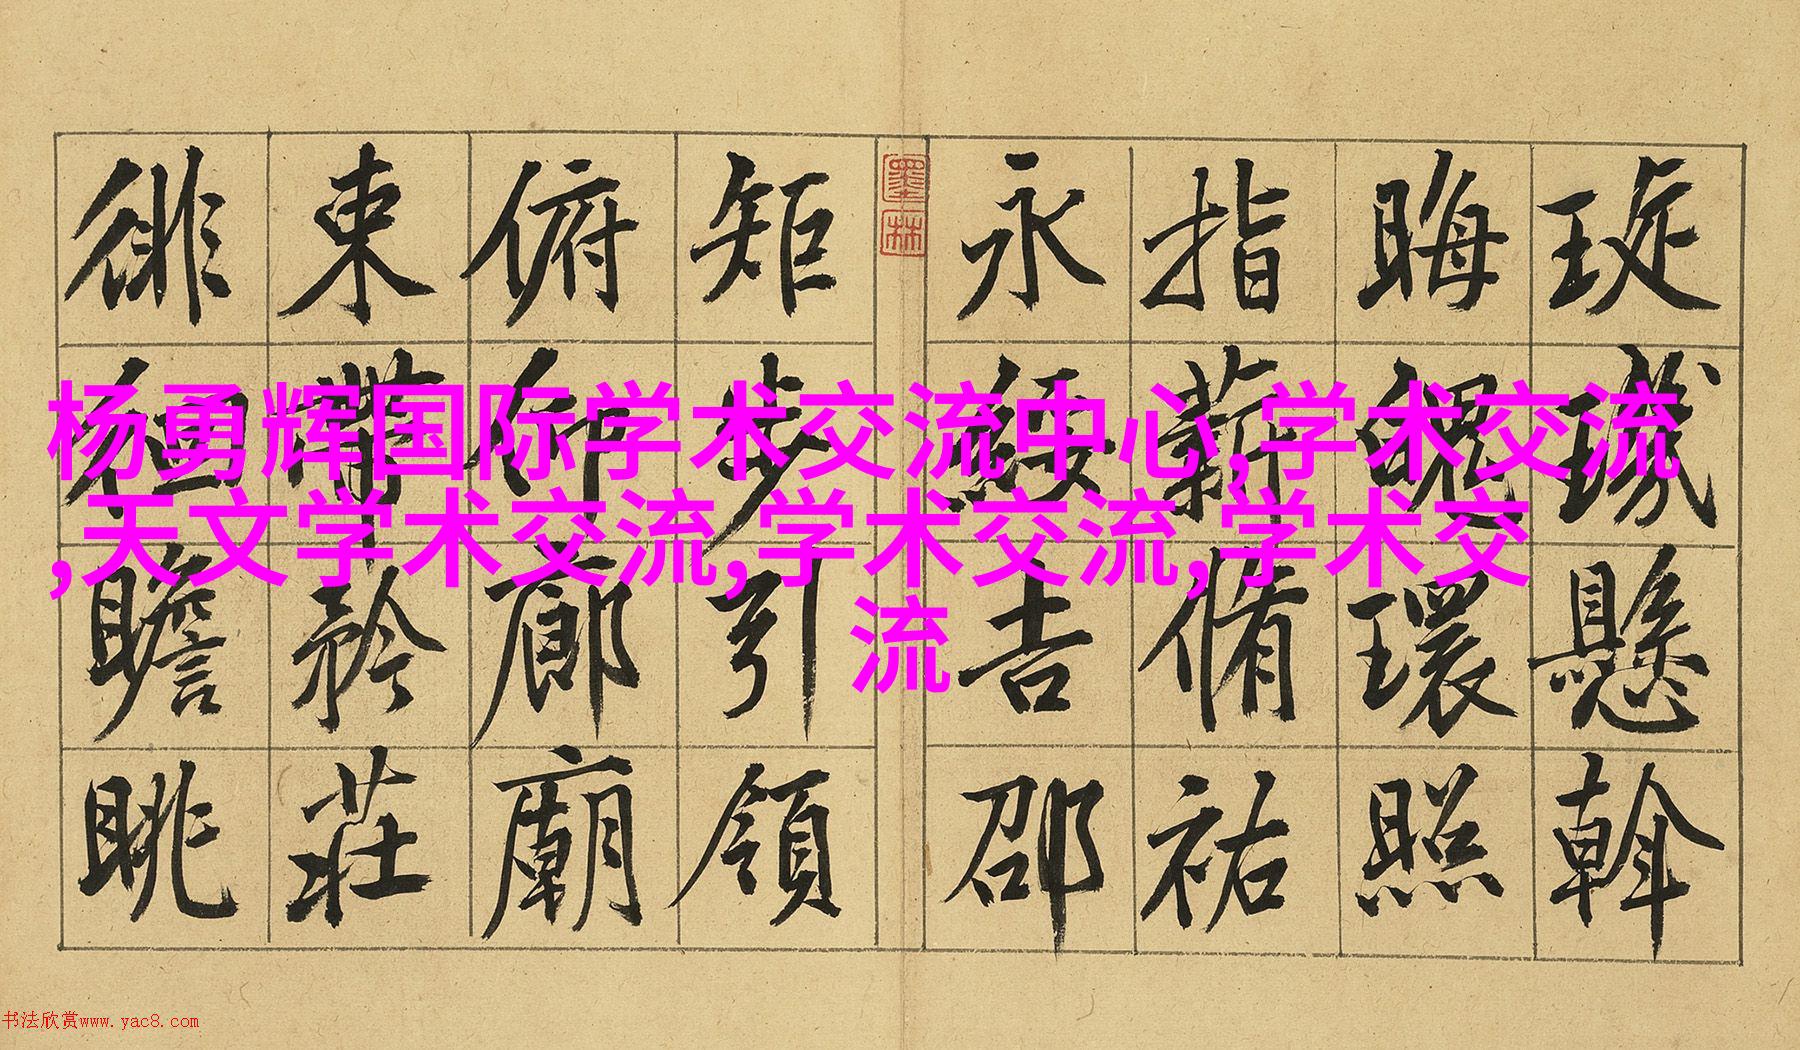 杨勇辉国际学术交流中心,学术交流
,天文学术交流,学术交流,学术交
流
璇璣懸斡
晦魄環照
指薪脩祐
永綏吉邵
矩步引領
俯仰廊廟
束帶矜莊
徘徊瞻眺
墨林
书法欣赏www.yac8.com